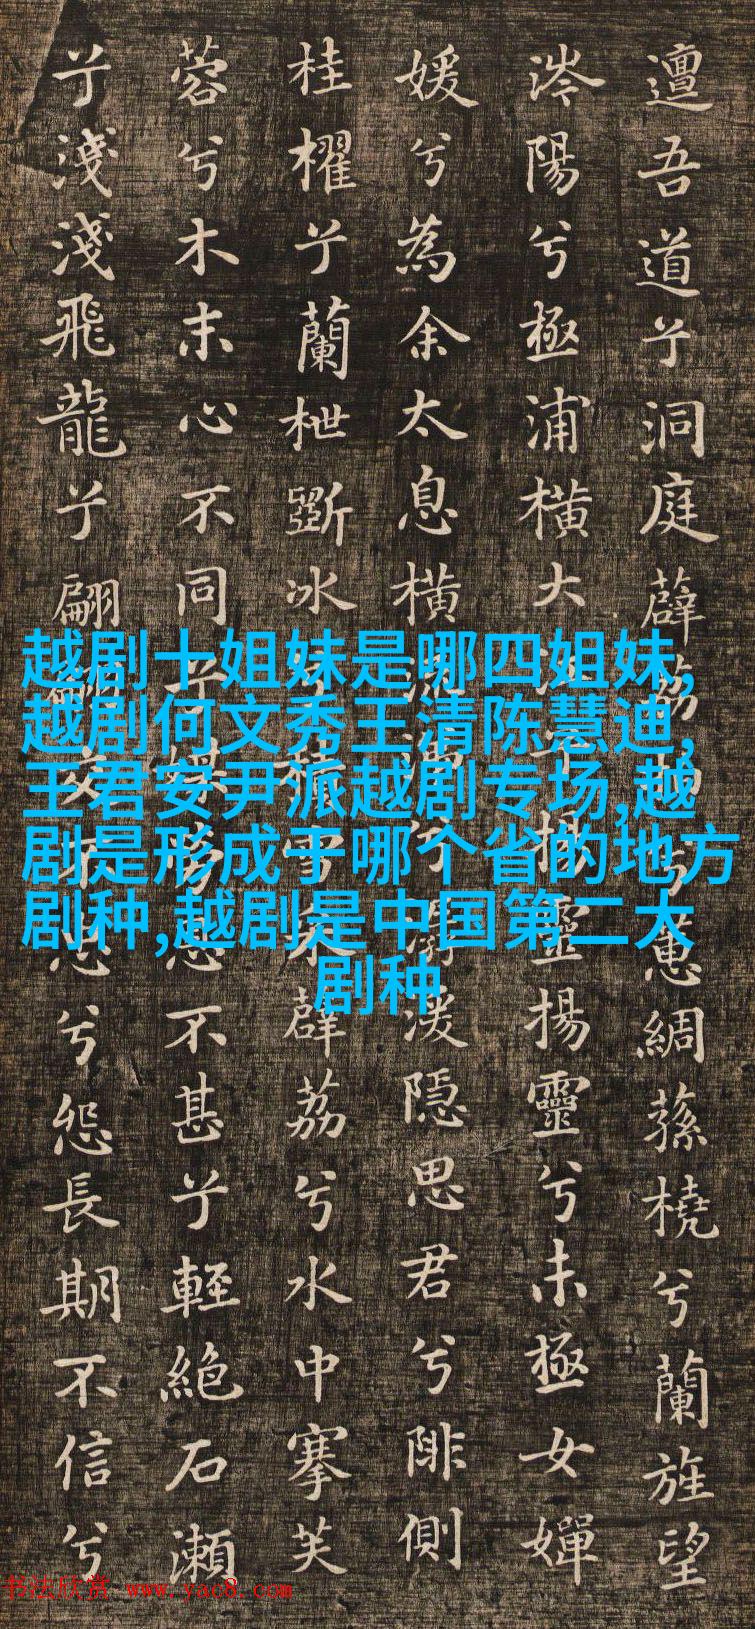 邅吾道兮洞庭薜荔兮蕙綢蓀橈兮蘭旌望
涔陽兮極浦橫大江兮揚靈揚靈兮未極女嬋
媛兮為余太息橫流涕兮潺湲隱思君兮陫側
桂櫂兮蘭枻斲冰兮積雪采薜荔兮水中搴芙
蓉兮木末心不同兮媒勞恩不甚兮輕絕石瀨
兮淺淺飛龍兮翩翩交不忠兮怨長期不信兮
越剧十姐妹是哪四姐妹,
越剧何文秀王清陈慧迪,
王君安尹派越剧专场,越
剧是形成于哪个省的地方
剧种,越剧是中国第二大
剧种
书法欣赏 www.yac8.com